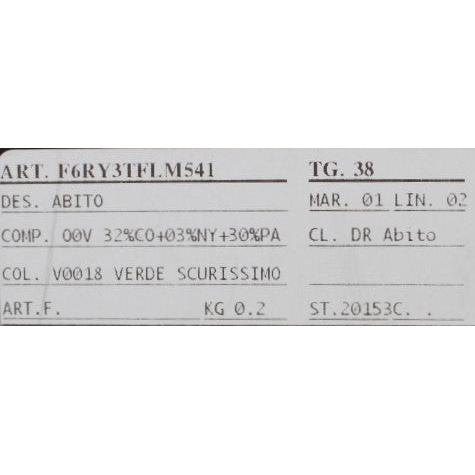 ART. F6RY3TFLM541 TG. 38
DES. ABITO MAR. 01 LIN. 02
COMP. 00V 32%CO+03%NY+30%PA CL. DR Abito
COL. V0018 VERDE SCURISSIMO
ART.F. KG 0.2 ST.20153C. .